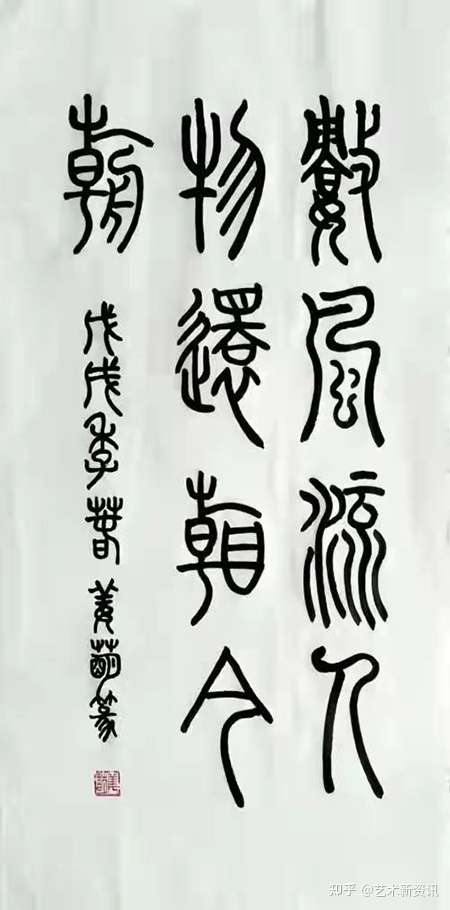 數風流人
物還看今
朝
戊戌季春姜萌篆
知乎 @艺术新资讯